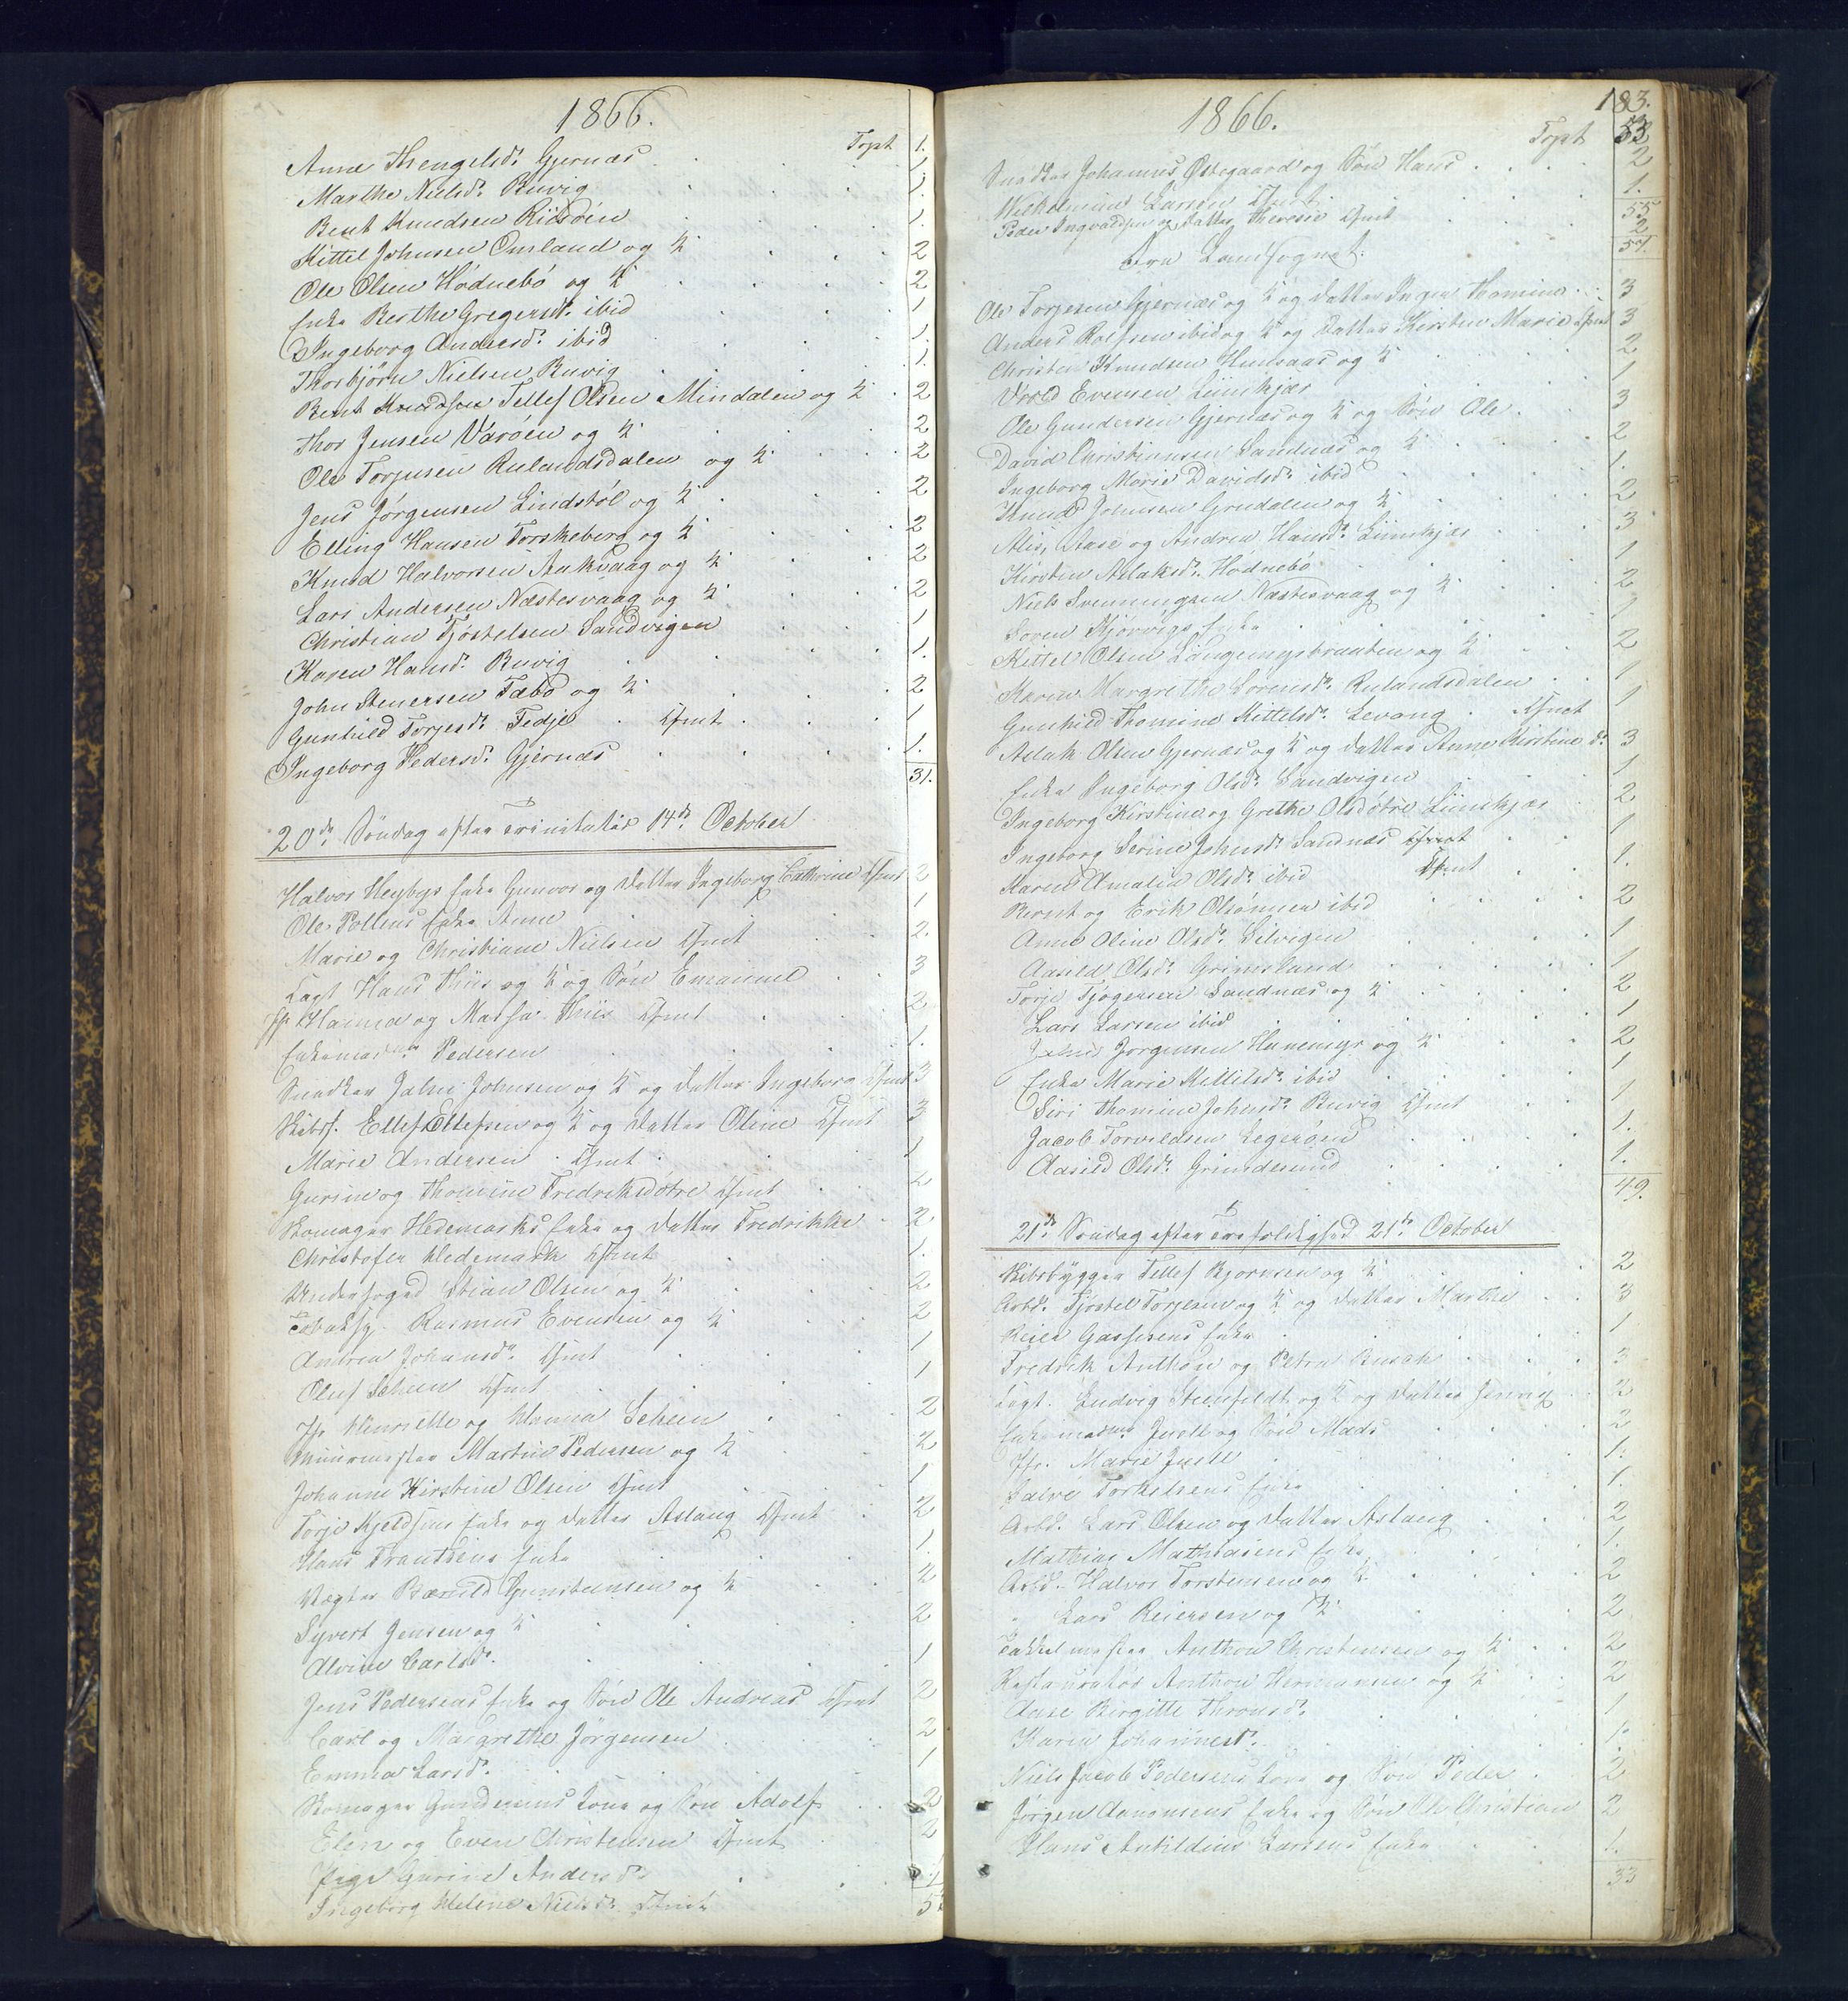 1866.
Tspt 1.
Anne Thengelsd. Gjernæs 1
Marthe Nielsd. Buvig 1.
Bent Knudsen Riisøen 1.
Kittel Johnsen Omland og K. 2
Ole Olsen Hödnebö og K. 2
Enke Berthe Gregersd. ibid 1
Ingeborg Andersd. ibid 1.
Thorbjörn Nielsen Buvig 1.
Tellef Olsen Mindalen og K. 2
Thor Jensen Varöen og K. 2
Ole Torjusen Rulandsdalen og K. 2
Jens Jörgensen Lindstöl og K. 2
Elling Hansen Torskeberg og K. 2
Knud Halvorsen Aakvaag og K. 2
Lars Andersen Næstesvaag og K. 2
Christian Tjöstelsen Sandvigen 1
Karen Hansd. Buvig 1.
John Stenersen Tæbö og K. 2
Gunhild Torjesd. Tedje Tjmt 1
Ingeborg Pedersd. Gjernæs 1.
31.
20de Söndag efter Trinitatis 14de October
Halvor Heybys Enke Gunvor og Datter Ingeborg Cathrine Tjmt 2
Ole Pollens Enke Anne 1
Marie og Christiane Nielsen Tjmt 2.
Capt Hans Thiis og K. og Sön Emanuel 3
Jfr Hanna og Thiis Tjmt 2
Enkemadme Pedersen 1.
Snedker John Johnsen og K. og Datter Ingeborg Tjmt 3
Skibsf. Ellef Ellefsen og K. og Datter Oline Tjmt 3
Marie Andersen Tjmt 1
Gurine og Thomine Fredriksdötre Tjmt 2
Skomager Hedemarks Enke og Datter Fredrikke 2
Christofer Hedemark Tjmt 1.
Underfoged Stian Olsen og K. 2
Rasmus Evensen og K. 2
Andrea Johannsd. Tjmt 1
Oluf Scheen Tjmt 1
Jfr Henriette og Hanna Scheen 2
Muurmester Martin Pedersen og K. 2
Johanne Kirstine Olsen Tjmt 1
Torje Kjeldsens Enke og Datter Aslaug Tjmt 2
Hans Frantsens Enke 1.
Vægter Gunsteinsen og K. 2
Syvert Jensen og K. 2
Alvine Carlsd. 1
Jens Pedersens Enke og Sön Ole Andreas Tjmt 2
Carl og Margrethe Jörgensen 2
Emma Larsd. 1
Skomager Gundersens Kone og Sön Adolf 2
Elen og Even Christensen Tjmt 2
Pige Gurine Andersd. 1
Ingeborg Helene Nielsd. Tjmt
1866.
183.
Tspt 53
Snedker Johannes Östegaard og Sön Hans 2
Wilhelmine Larsen Tjmt 1.
55
Peder Ingvaldsen og Datter Therese Tjmt 2
57.
Fra Landsognet.
Ole Torjesen Gjernæs og K. og Datter Inger Thomine 3
Anders Roefsen ibid og K. og Datter Kirsten Marie Tjmt 3
Christen Knudsen Hulvaas og K. 2
Vrold Evensen Limskjær 1
Ole Gundersen Gjernæs og K. og Sön Ole 3
David Christiansen Sandnæs og K. 2
Ingeborg Marie Davidsd. ibid 1.
Knud Johnsen Grndalen og K. 2
Alis, Aase og Andrea Hansd. Limskjær 3
Kirsten Aslaksd. Hödnebö 1
Niels Svenningsen Næstesvaag og K. 2
Sören Kjörvigs Enke 1
Kittel Olsen Langemyrbraaten og K. 2
Karen Margrethe Sörensd. Rulandsdalen 1
Gunhild Thomine Kittelsd. Levang Tjmt 1
Aslak Olsen Gjernæs og K. og Datter Anne Kirstine d. 3
Enke Ingeborg Olsd. Sandvigen 1
Ingeborg Kirstine og Grethe Olsdötre Limskjær 2
Ingeborg Serine Johnsd. Sandnæs Tjmt 1
Karen Amalia Olsd. ibid Tjmt 1.
Bernt og Erik Olsönner ibid 2
Anne Oline Olsd. Silvigen 1
Aasild Olsd. Grimsland 1
Torje Tjögersen Sandnæs og K. 2
Lars Larsen ibid 1
Jens Jörgensen Hanemyr og K. 2
Enke Marie Kittilsd. ibid 1
Siri Thomine Johnsd. Buvig Tjmt 1
Jacob Torvildsen Legeröen 1.
Aasild Olsd. Grimdesund 1.
49.
21de Söndag efter Trefoldighed 21de October
Skibsbygger Tellef Bjornsen og K. 2
Arbd. Tjöstel Torjesen og K. og Datter Marthe 3
Reier Gassesens Enke 1
Fredrik Anthon og Petra Busch 3
Capt. Ludvig Steenfeldt og K. og Datter Jenny 3
Enkemadme Juell og Sön Mads 2
Jfr. Marie Juell 1.
Salve Torkelsens Enke 1.
Arbd. Lars Olsen og Datter Aslaug 2
Mathias Mathiasens Enke 1.
Arbd. Halvor Torstensen og K. 2
Lars Reiersen og K. 2
Takkelmester Anthon Christensen og K. 2
Restauratör Anthon Hermansen og K. 2
Aase Birgitte Thronsd. 1
Karen Johannesd. 1.
Niels Jacob Pedersens Kone og Sön Peder 2
Jörgen Aanonsens Enke og Sön Ole Christian 2
Hans Larsens Enke 1.
33